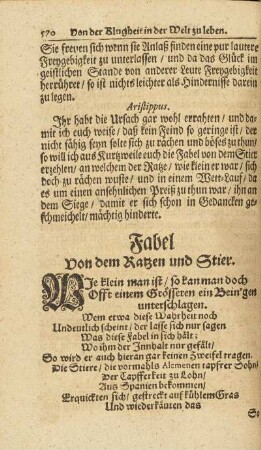 570 Von der Klugheit in der Welt zu leben.
Sie freyen sich wenn sie Anlaß finden eine pur lautere
Freygebigkeit zu unterlassen / und da das Glück im
geistlichen Stande von anderer Leute Freygebigkeit
herrühret / so ist nichts leichter als Hindernisse darein
zu legen.
Aristippus.
Ihr habt die Ursach gar wohl errahten / und da-
mit ich euch weise / daß kein Feind so geringe ist / der
nicht fähig seyn solte sich zu rächen und böses zu thun /
so will ich aus Kurtzweile euch die Fabel von dem Stier
erzehlen / an welchem der Ratze / wie klein er war / sich
doch zu rächen wuste / und in einem Wett-Lauf / da
es um einen ansehnlichen Preiß zu thun war / ihn an
dem Siege / damit er sich schon in Gedancken ge-
schmeichelt / mächtig hinderte.
Fabel
Von dem Ratzen und Stier.
WIe klein man ist / so kan man doch
Offt einem Grösseren ein Bein'gen
unterschlagen.
Wem etwa diese Wahrheit noch
Undeutlich scheint / der lasse sich nur sagen
Was diese Fabel in sich hält:
Wo ihm der Innhalt nur gefält /
So wird er auch hieran gar keinen Zweifel tragen.
Die Stiere / die vormahls Alcmenen tapfrer Sohn /
Der Tapfferkeit zu Lohn /
Aus Spanien bekommen /
Erquickten sich / gestreckt auf kühlem Gras
Und wiederkäuten das
So